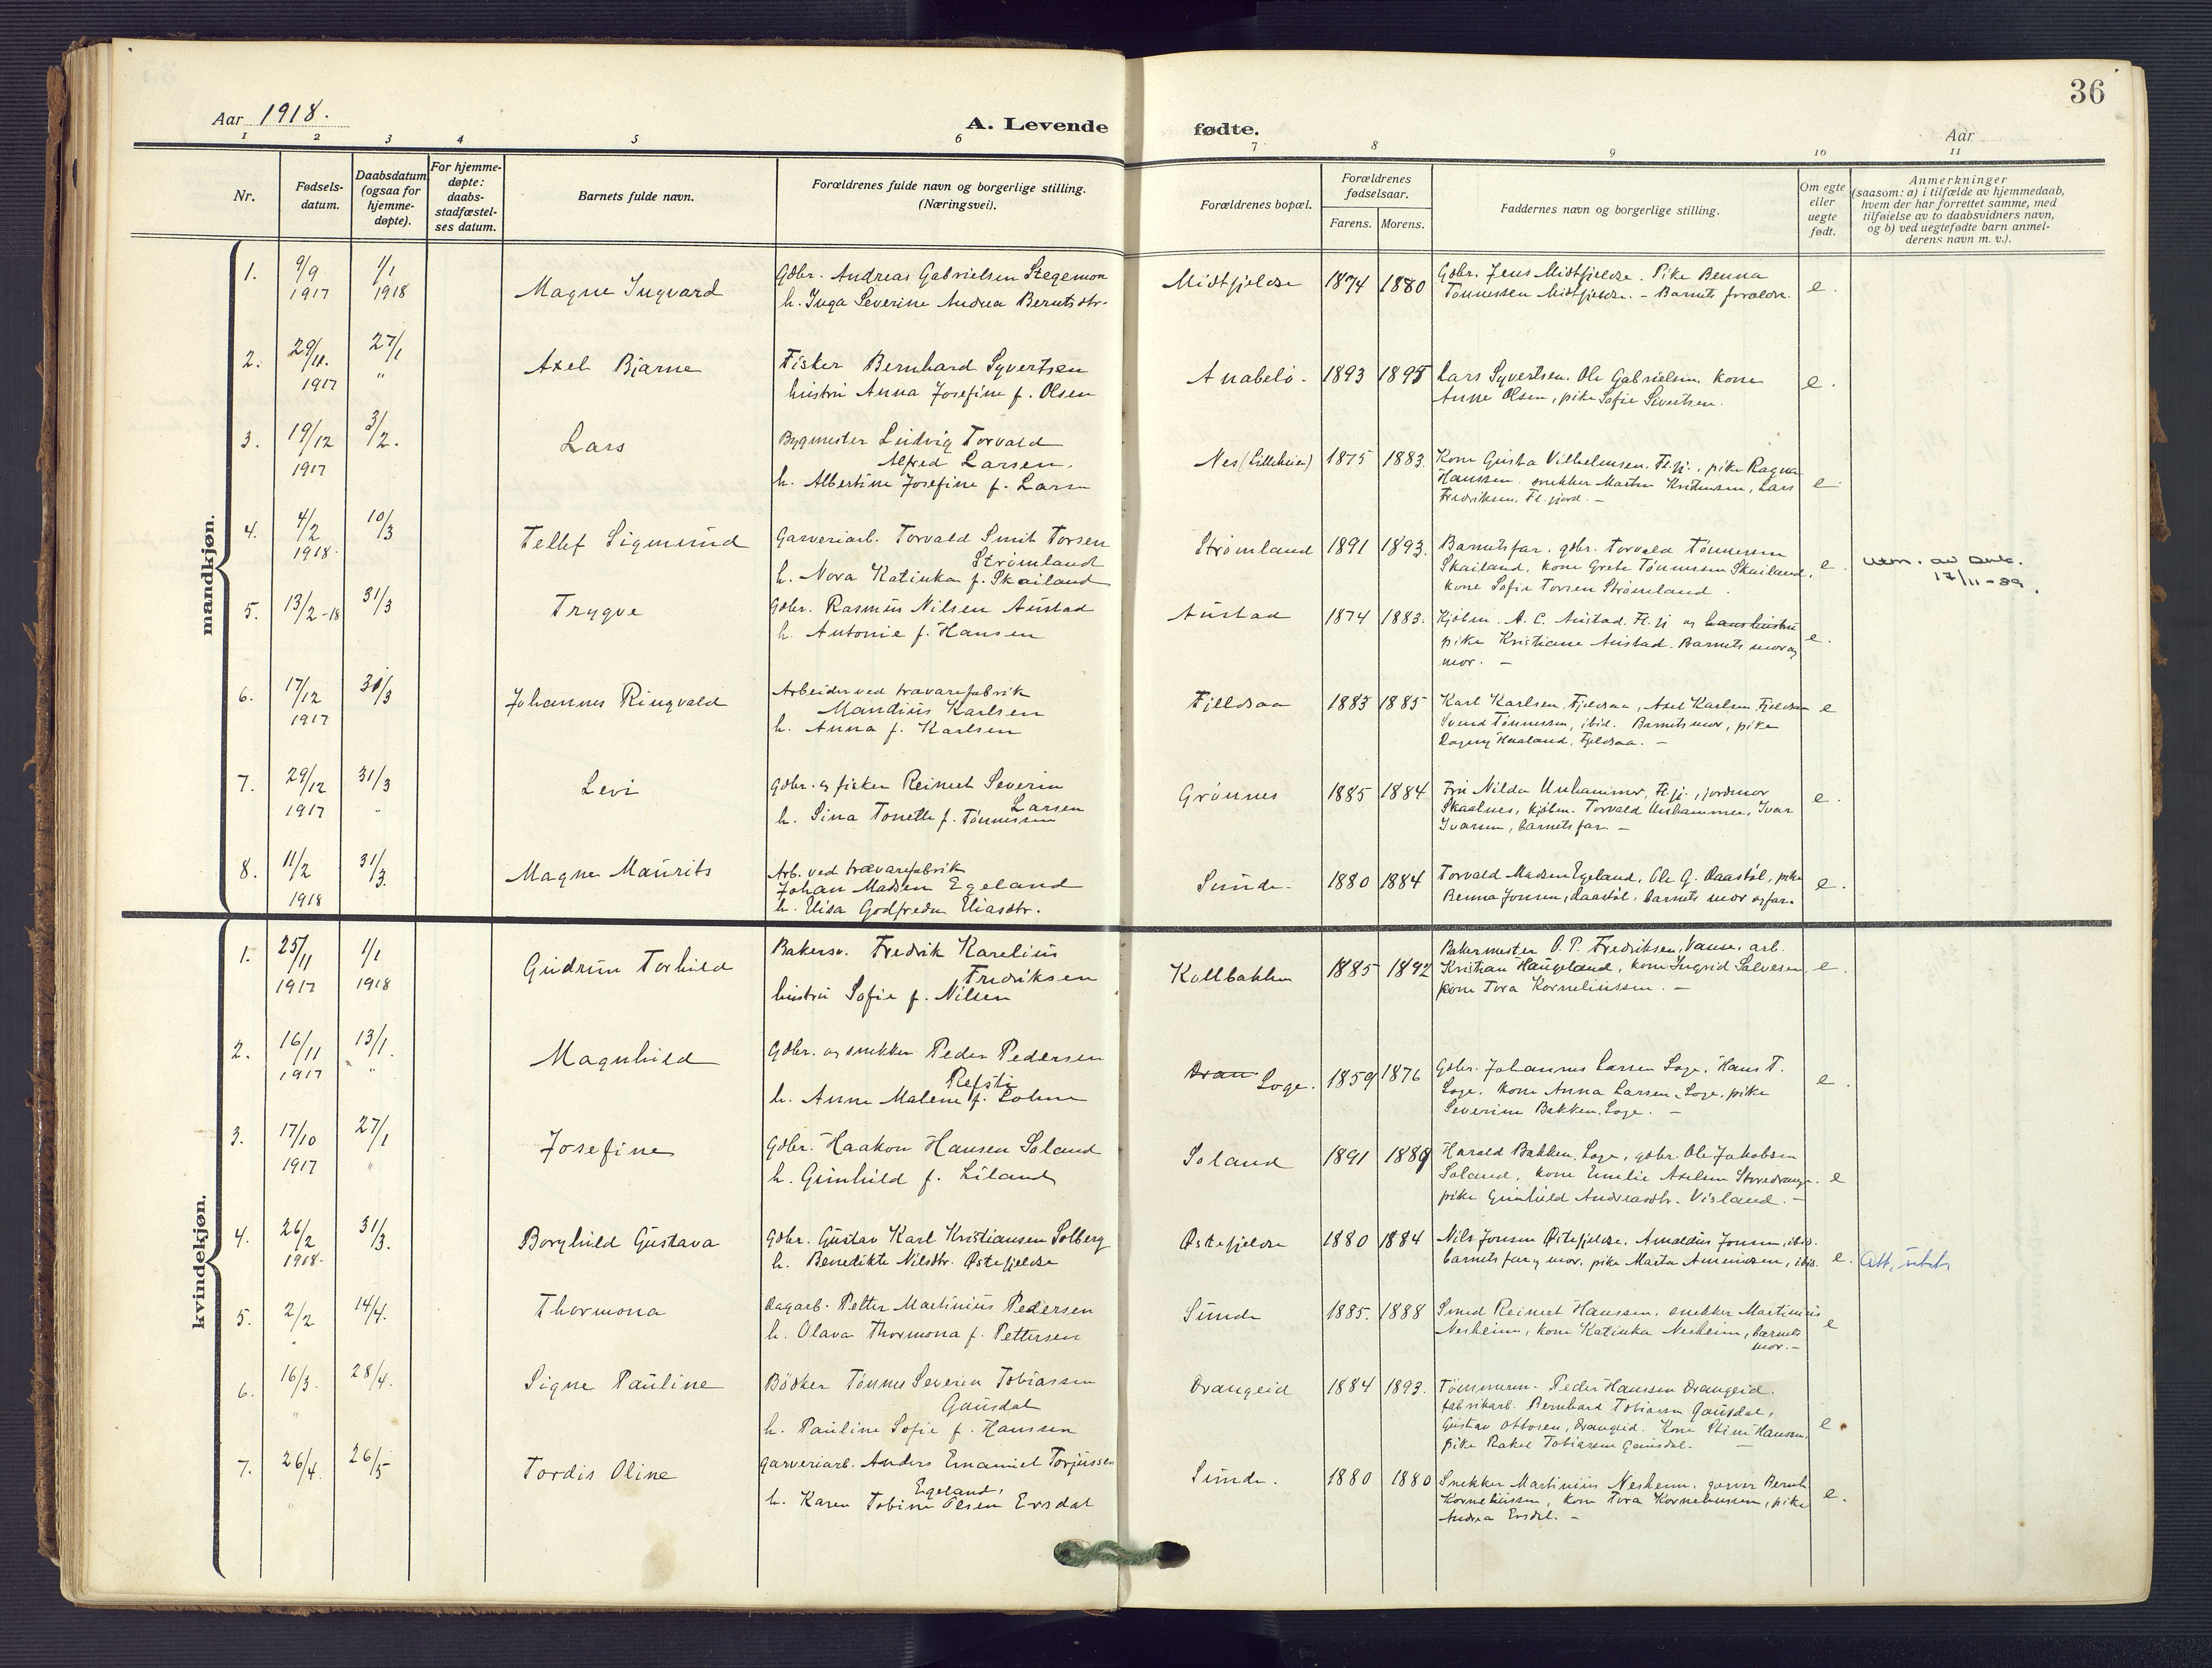 36
Aar 1918.
A. Levende fødte.
Aar
1 2 3 4 5 6 7 8 9 10 11
Nr.
Fødsels-
datum.
Daabsdatum
(ogsaa for
hjemme-
døpte).
For hjemme-
døpte:
daabs-
stadfæstel-
ses datum.
Barnets fulde navn.
Forældrenes fulde navn og borgerlige stilling.
(Næringsvei).
Forældrenes bopæl.
Forældrenes
fødselsaar.
Farens. Morens.
Faddernes navn og borgerlige stilling.
Om egte
eller
uegte
født.
Anmerkninger
(saasom: a) i tilfælde av hjemmedaab,
hvem der har forrettet samme, med
tilføielse av to daabsvidners navn,
og b) ved uegtefødte barn anmel-
derens navn m. v.).
mandkjøn.
1. 9/9 1917 1/1 1918
Magne Ingvard
Gdbr. Andreas Gabrielsen Stegemon
h. Inga Severine Andrea Berntsdtr.
Midtfjeldse 1874 1880
Gdbr. Jens Midtfjeldse. Pike Benna
Tønnessen Midtfjeldse. - Barnets forældre.
e.
2. 29/11. 1917 27/1 "
Axel Bjarne
Fisker Bernhard Syvertsen
hustru Anna Josefine f. Olsen
Anabelø. 1893 1895
Lars Syvertsen. Ole Gabrielsen. Kone
Anne Olsen, pike Sofie Sivertsen.
e.
3. 19/12 1917 3/2.
Lars
Bygmester Ludvig Torvald
Alfred Larsen.
h. Albertine Josefine f. Larsen
Nes (Lilleheien) 1875 1883.
Kone Gusta Vilhelmsen. Fl.fj., pike Ragna
Hanssen. snekker Martin Kristensen, Lars
Fredriksen, Fl. fjord. -
e.
4. 4/2 1918. 10/3
Tellef Sigmund
Garveriarb. Torvald Smit Torsen
Strømland
h. Nora Katinka f. Skailand
Strømland 1891 1893.
Barnets far. gdbr. Torvald Tønnessen
Skailand, kone Grete Tønnessen Skailand,
kone Sofie Torsen Strømland.
e.
17/11-39.
5. 13/2-18 31/3
Trygve
Gdbr. Rasmus Nilsen Austad
h. Antonie f. Hansen
Austad 1874 1883.
Kjøbm. A. C. Austad. Fl. fj og hans hustru
pike Kristiane Austad. Barnets mor og
mor. -
e.
6. 17/12 1917 31/3
Johannes Ringvald
Arbeider ved trævarefabrik
Mandius Karlsen
h. Anna f. Karlsen
Fjeldsaa 1883 1885
Karl Karlsen, Fjeldsaa, Axel Karlsen Fjeldsaa
Svend Tønnessen, ibid. Barnets mor, pike
Dagny Haaland, Fjeldsaa. -
e
7. 29/12 1917 31/3 "
Levi
Gdbr. og fisker Reinert Severin
Larsen
h. Sina Tonette f. Tønnessen
Grønnes 1885 1884
Fru Nilda Unhammer, Fl.fj., jordmor
Skaalnes, kjøbm. Torvald Unhammer, Ivar
Ivarsen, barnets far. -
e.
8. 11/2 1918 31/3.
Magne Maurits
Arb. ved trævarefabrik
Johan Madsen Egeland
h. Elisa Godfredine Eliasdtr.
Sunde. 1880 1884
Torvald Madsen Egeland, Ole G. Raastøl, pike
Benna Jonsen, Raastøl, barnets mor og far.
e.
kvindekjøn.
1. 25/11 1917 1/1 1918
Gudrun Torhild
Bakersv. Fredrik Karelius
Fredriksen
hustru Sofie f. Nilsen
Kollbakken 1885 1892
Bakermester O. P. Fredriksen, Vanse, arb.
Kristian Haugeland, kone Ingrid Salvesen,
kone Tora Korneliussen. -
e.
2. 16/11 1917 13/1. "
Magnhild
Gdbr. og snekker Peder Pedersen
Refsti
h. Anne Malene f. Lohne
Dran Loge. 1859 1876
Gdbr. Johannes Larsen Loge, Hans T.
Loge, kone Anna Larsen, Loge, pike
Severine Bakken, Loge. -
e.
3. 17/10 1917 27/1 "
Josefine
Gdbr. Haakon Hansen Soland
h. Gunhild f. Liland
Soland 1891 1889
Harald Bakken, Loge, gdbr. Ole Jakobsen
Soland, kone Emelie Axelsen Storedrange.
pike Gunhild Andreasdtr. Visland. -
e
4. 26/2 1918. 31/3.
Borghild Gustava
Gdbr. Gustav Karl Kristiansen Solberg
h. Benedikte Nilsdtr. Østefjeldse
Østefjeldse 1880 1884
Nils Jonsen Østefjeldse. Arnoldus Jonsen, ibid.
barnets far og mor, pike Marta Amundsen, ibid.
e.
Att. utst.
5. 2/2 " 14/4.
Thormona
Dagarb. Petter Martinius Pedersen
h. Olava Thormona f. Pettersen
Sunde 1885. 1888
Smed Reinert Hanssen, snekker Martinius
Nesheim, kone Katinka Nesheim, barnets
mor. -
e
6. 16/3. " 28/4.
Signe Pauline
Bødker Tønnes Severin Tobiassen
Gausdal
h. Pauline Sofie f. Hanssen
Drangeid 1884 1893.
Tømmerm. Peder Hanssen Drangeid.
fabrikarb. Bernhard Tobiassen Gausdal,
Gustav Ottosen, Drangeid. Kone Stine Hanssen,
pike Rakel Tobiassen Gausdal. -
e
7. 26/4. " 26/5
Tordis Oline
Garveriarb. Anders Emanuel Torjussen
Egeland,
h. Karen Tobine Olsen Ersdal
Sunde. 1880 1880
Snekker Martinius Nesheim, garver Bernh.
Korneliussen, kone Tora Korneliussen, pike
Andrea Ersdal. -
e.